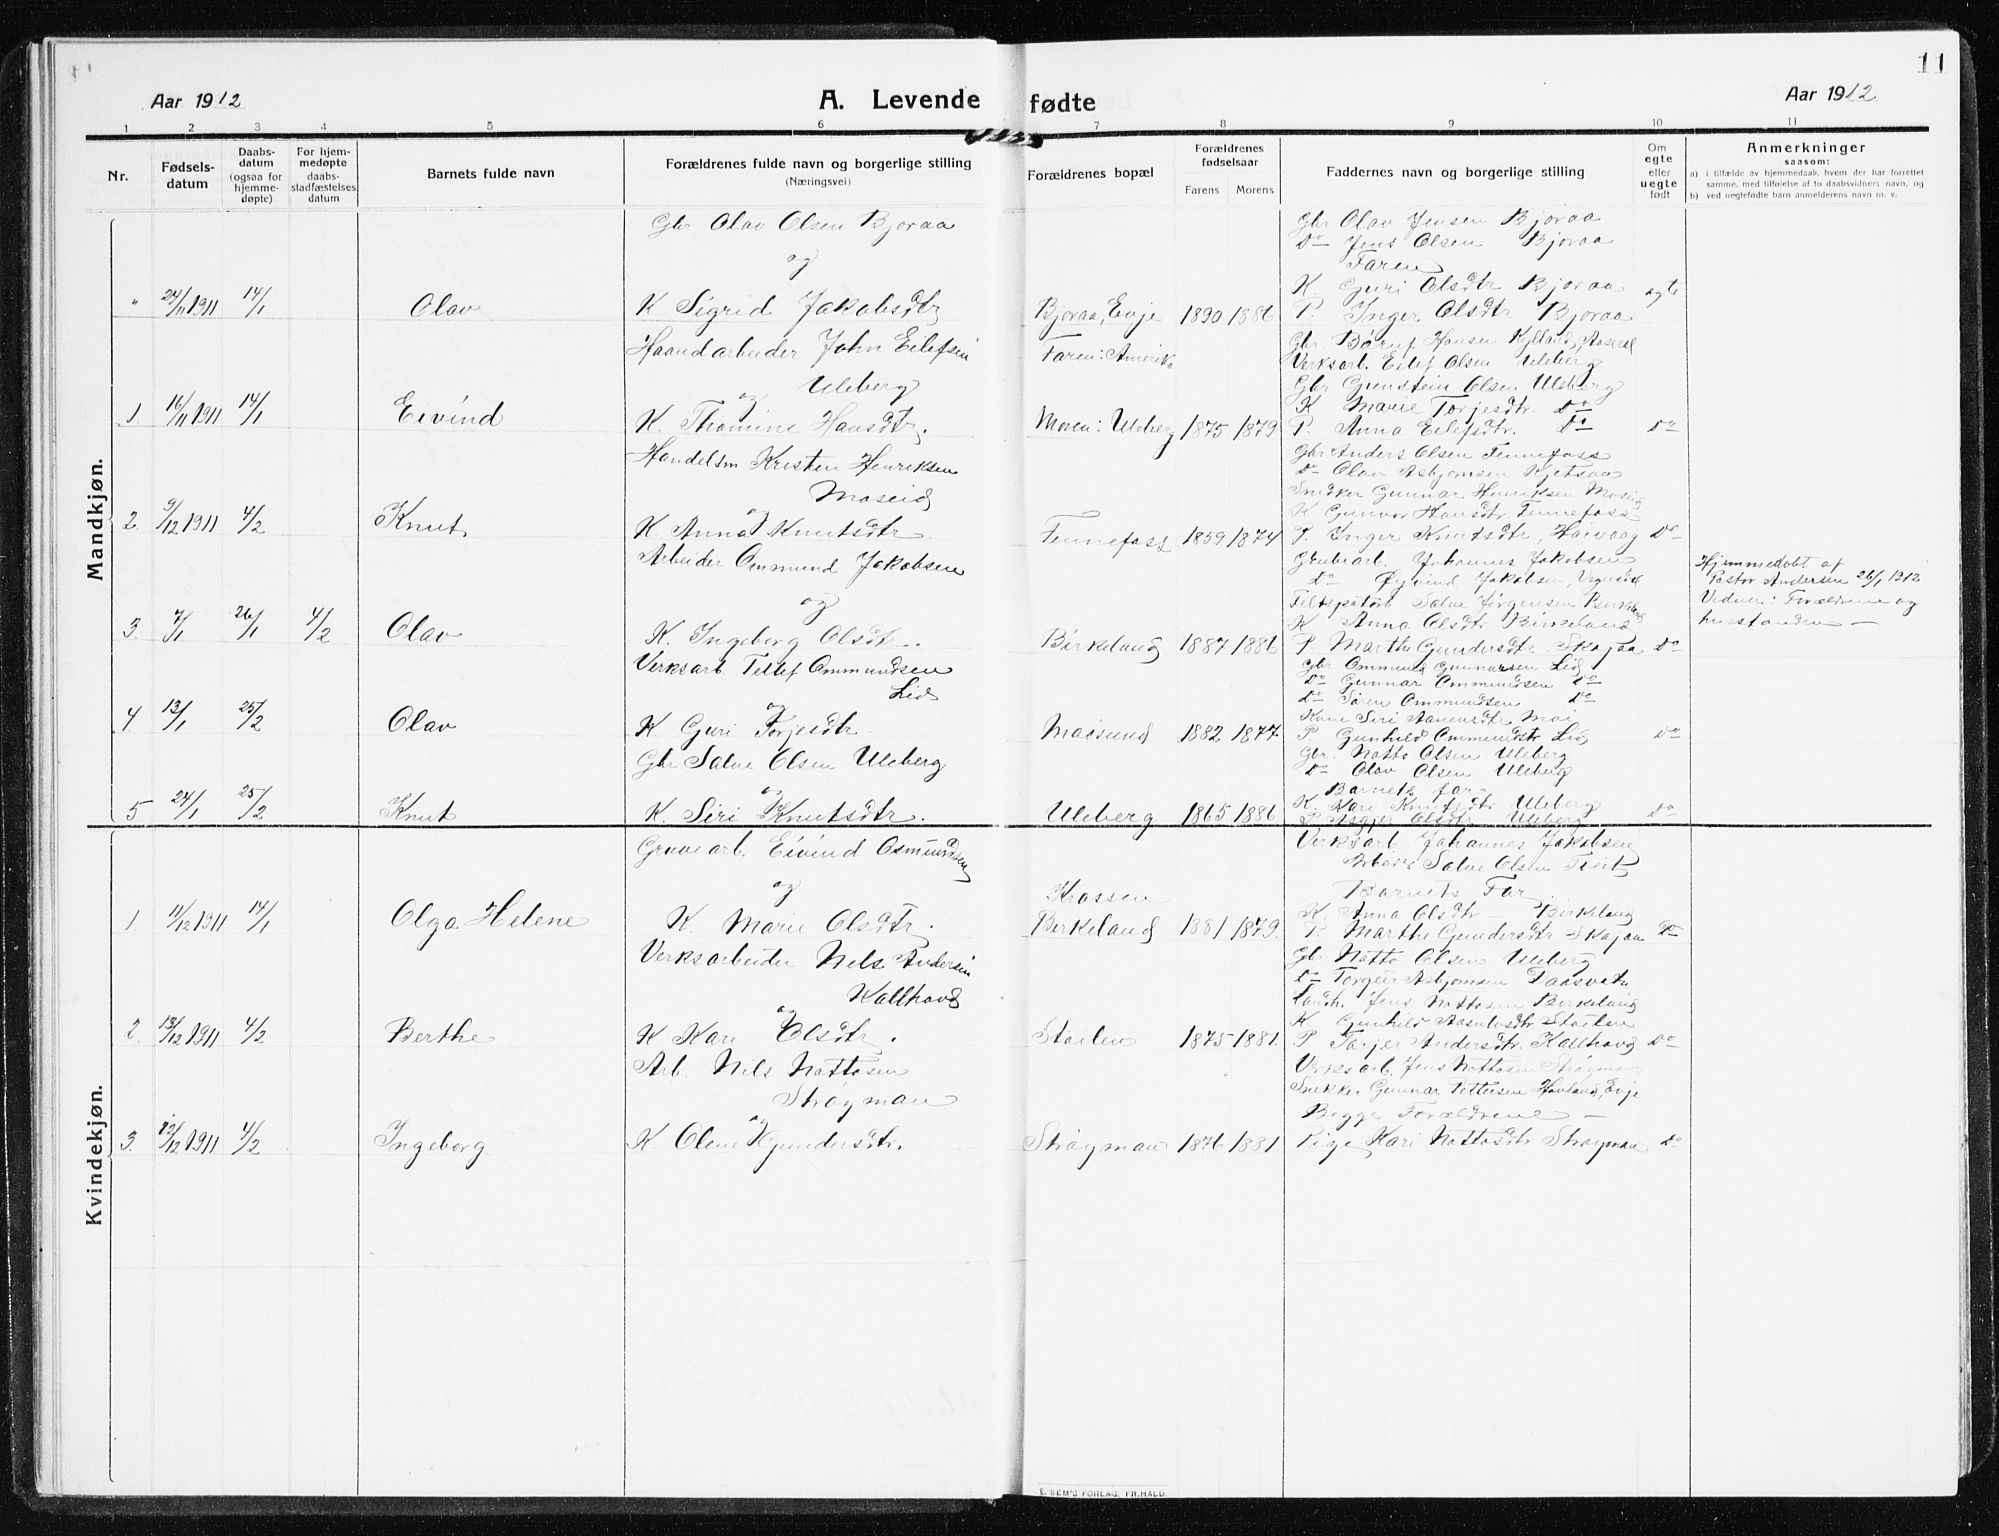 11
Aar 1912
A. Levende fødte
Aar 1912
1 2 3 4 5 6 7 8 9 10 11
Nr.
Fødsels-
datum
Daabs-
datum
(ogsaa for
hjemme-
døpte)
For hjem-
medøpte
daabs-
stadfæstelses
datum
Barnets fulde navn
Forældrenes fulde navn og borgerlige stilling
(Næringsvei)
Forældrenes bopæl
Forældrenes
fødselsaar
Farens Morens
Faddernes navn og borgerlige stilling
Om
egte
eller
uegte
født
Anmerkninger
saasom:
a) i tilfælde av hjemmedaab, hvem der har forrettet
samme, med tilføielse af to daabsvidners navn, og
b) ved uegtefødte barn anmelderens navn m. v.
Mandkjøn.
" 24/11 1911 14/1
Olav
Gbr Olav Olsen Bjoraa
og
K Sigrid Jakobsdtr
Bjoraa, Evje
1890 1886
Gbr Olav Jensen Bjoraa
Do Jens Olsen Bjoraa
Faren
K Guri Olsdtr Bjoraa
P. Inger Olsdtr Bjoraa
egte
1. 16/11 1911 14/1
Eivind
Haandarbeider John Eilefsen
Uleberg
og
K. Thomine Hansdtr.
Faren: Amerika
Moren: Uleberg
1875 1879
Gbr Hansen Kylland, Aaseral
Verksarb. Eilef Olsen Uleberg
Gbr Gunstein Olsen Uleberg
K Marie Torjesdtr. Do
P. Anna Eilefsdtr. Do
Do
2. 9/12 1911 4/2
Knut
Handelsm Kristen Henriksen
Moseid
og
K Anna Knutsdtr.
Fennefoss
1859 1874
Gbr Anders Olsen Fennefoss
Do Olav Asbjornsen Kjetsaa
Snedker Gunnar Henriksen Moseid
K Gunvor Hansdtr. Fennefoss
P. Inger Knutsdtr, Høivaag
Do
3. 7/1 26/1 4/2
Olav
Arbeider Ommund Jakobsen
og
K. Ingeborg Olsdtr.
Birkeland
1887 1886
Grubearb. Johannes Jakobsen
Do Øyvind Jakobsen,
Salve Jørgensen Birkeland
K Anna Olsdtr Birkeland
P. Marthe Gundersdtr. Skajaa
Do
Hjemmedøbt af
Pastor Andersen 26/1 1912
Vidner: Forældrene og
husstanden —
4. 13/1 25/2
Olav
Verksarb. Tellef Ommundsen
Lid
og
K Guri Torjesdtr.
Moisund
1882 1877
Gbr Ommund Gunnarsen Lid
Do Gunnar Ommundsen Do
Do Søren Ommundsen Do
Kone Siri Aanensdtr Moi
P Gunhild Ommundsdtr Lid
Do
5 24/1 25/2
Knut
Gbr Salve Olsen Uleberg
og
K. Siri Knutsdtr.
Uleberg
1865 1886
Gbr. Notto Olsen Uleberg
Do Olav Olsen Uleberg
Barnets far
K. Kari Knutsdtr Uleberg
P Olsdtr Uleberg
Do
Kvindekjøn.
1. 11/12 1911 14/1
Olga Helene
Gruvearb. Eivind Osmundsen
og
K Marie Olsdtr.
Krossen
Birkeland
1881 1879.
Verksarb Johannes Jakobsen
Arbeider Salve Olsen Treit
Barnets Far
K. Anna Olsdtr — Birkeland
P. Marthe Gundersdtr Skajaa
Do
2 13/12 1911 4/2
Berthe
Verksarbeider Nils Andersen
Kallhovd
og
K Kari Olsdtr.
Støilen
1875 1881.
Gbr Notto Olsen Uleberg
Do Torgeir Asbjornsen Daasvatn
Jens Nottosen Birkeland
K Gunhild Aasulvsdtr Støilen
P Torjer Andersdtr. Kallhovd
Do
3. 12/12 1911 4/2
Ingeborg
Arb. Nils Nottosen
Strøgman
og
K. Olene Gundersdtr.
Strøgman
1876 1881.
Verksarb. Jens Nottosen Strøgman
Snekker Gunnar Pettersen Hovland, Evje
Begge Forældrene —
Pige Kari Nottosdtr Strøgman
Do
E. SEM'S FORLAG, FR.HALD.